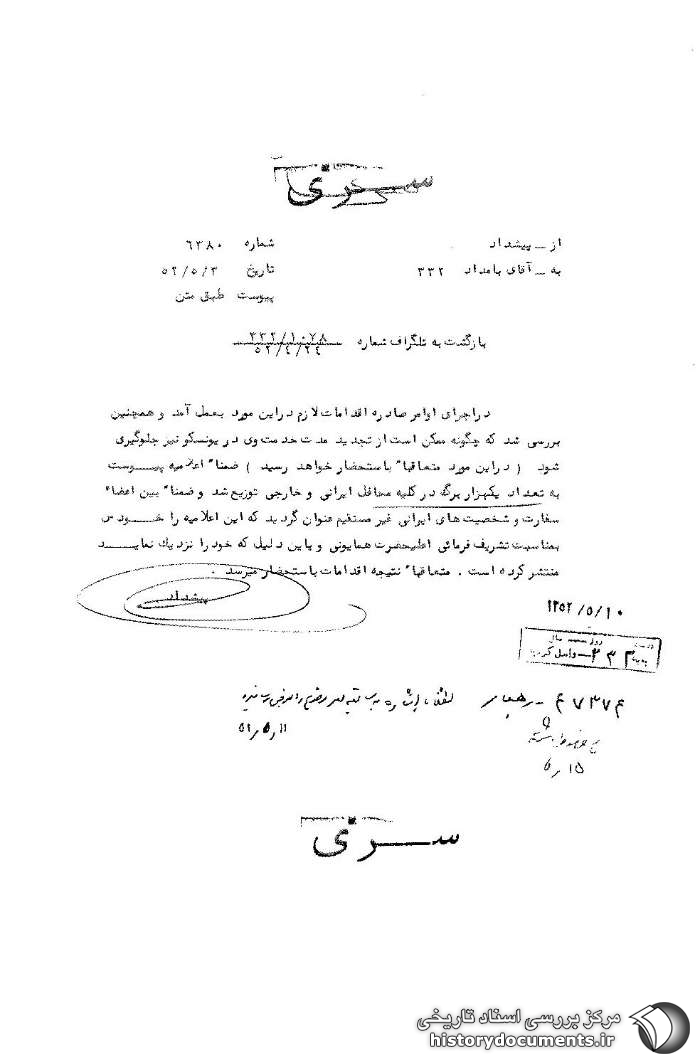 سری
از ـ پیشداد
شماره ۶۳۸۰
به ـ آقای بامداد ۳۳۲
تاریخ ۵۲/۵/۳
پیوست طبق متن
بازگشت به تلگراف شماره
۵۲/۴/۲۴
در اجرای اوامر صادره اقدامات لازم در این مورد بعمل آمد و همچنین
بررسی شد که چگونه ممکن است از تجدید مدت خدمت وی در یونسکو نیز جلوگیری
شود ( در این مورد متعاقبا" باستحضار خواهد رسید ) ضمنا" اعلامیه پیـوست
به تعداد یکهزار برگ در کلیه محافل ایرانی و خارجی توزیع شد و ضمنا" بین اعضاء
سفارت و شخصیت های ایرانی غیر مستقیم عنوان گردید که این اعلامیه را خـودش
بمناسبت تشریف فرمائی اعلیحضرت همایونی و باین دلیل که خود را نزدیك نمایـد
منتشر کرده است . متعاقبا" نتیجه اقدامات باستحضار میرسد .
پیشداد
۱۳۵۲/۵/۱۰
۳۳۲ واصل
رهبر
لطفا
۱۱/۵/۵۲
۱۵/۵
سری
مرکز بررسی اسناد تاریخی
historydocuments.ir